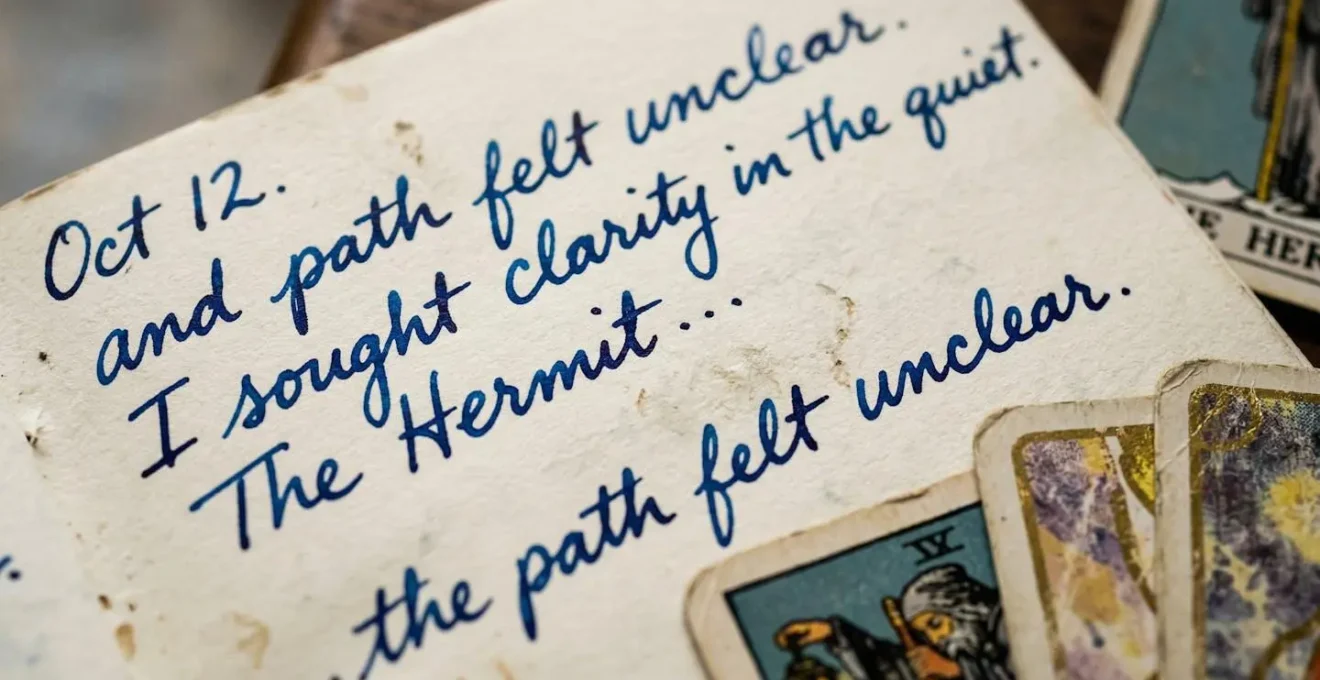 Oct 12.
and path felt unclear.
I sought clarity in the quiet.
The Hermit...
the path felt unclear.
HER